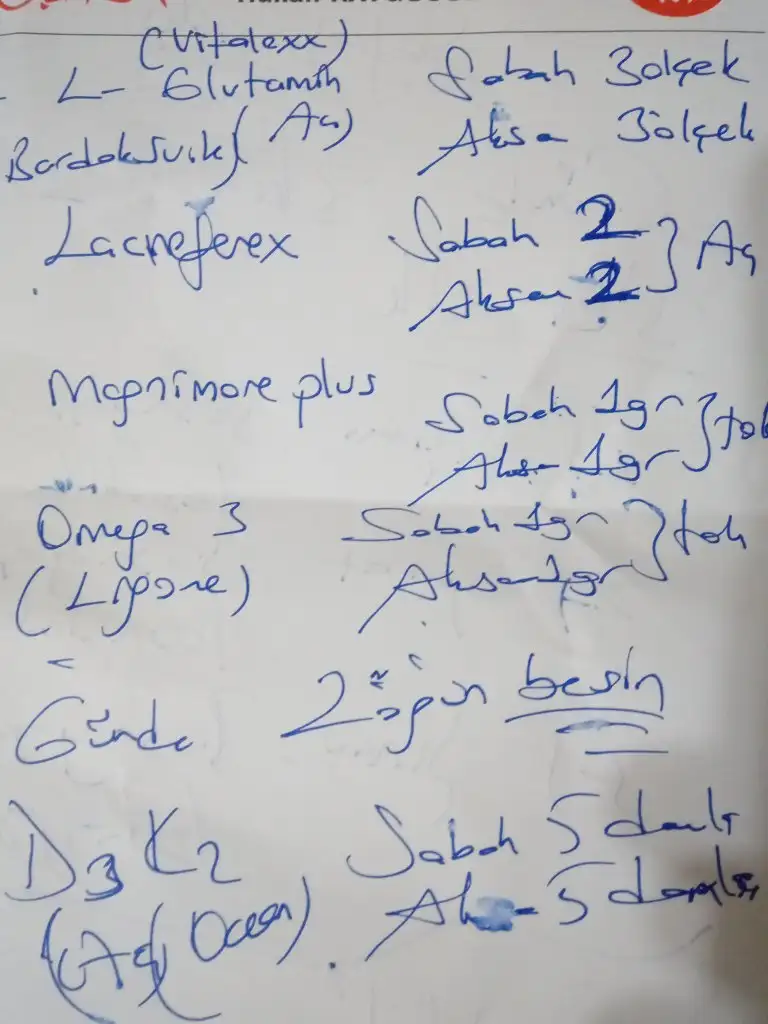 (Vitalexx)
- L- Glutamin Sabah 3 ölçek
Bardaksuik (Aç) Akşam 3 ölçek
Lacneferex Sabah 2 } Aç
Akşam 2
Magnimore plus Sabah 1gr } tok
Akşam 1gr
Omega 3 Sabah 1gr } tok
(Ligone) Akşam 1gr
Günde 2 öğün besin
D3 K2 Sabah 5 damla
(Aç) (Ocean) 5 damla